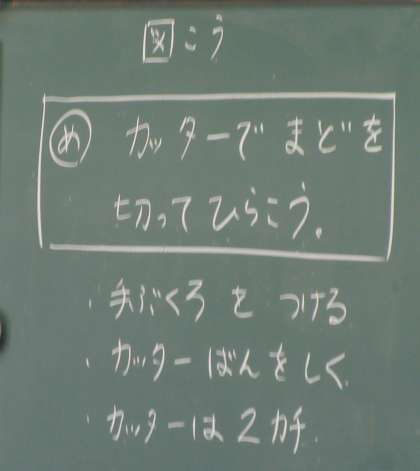 図こう
め カッターでまどを
切ってひらこう。
・手ぶくろをつける
・カッターばんをしく
・カッターは2カチ